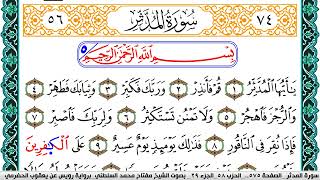 ٧٤ سُورَةُ المُدَّثِّرِ ٥٦
بِسْمِ اللَّهِ الرَّحْمَٰنِ الرَّحِيمِ
يَٰٓأَيُّهَا الْمُدَّثِّرُ ١ قُمْ فَأَنذِرْ ٢ وَرَبَّكَ فَكَبِّرْ ٣ وَثِيَابَكَ فَطَهِّرْ ٤
وَالرُّجْزَ فَاهْجُرْ ٥ وَلَا تَمْنُن تَسْتَكْثِرُ ٦ وَلِرَبِّكَ فَاصْبِرْ ٧
فَإِذَا نُقِرَ فِي النَّاقُورِ ٨ فَذَٰلِكَ يَوْمَئِذٍ يَوْمٌ عَسِيرٌ ٩ عَلَى الْكَٰفِرِينَ
سورة المدثر الصفحة ٥٧٥ الحزب ٥٨ الجزء ٢٩ بصوت الشيخ مفتاح محمد السلطني برواية رويس عن يعقوب الحضرمي